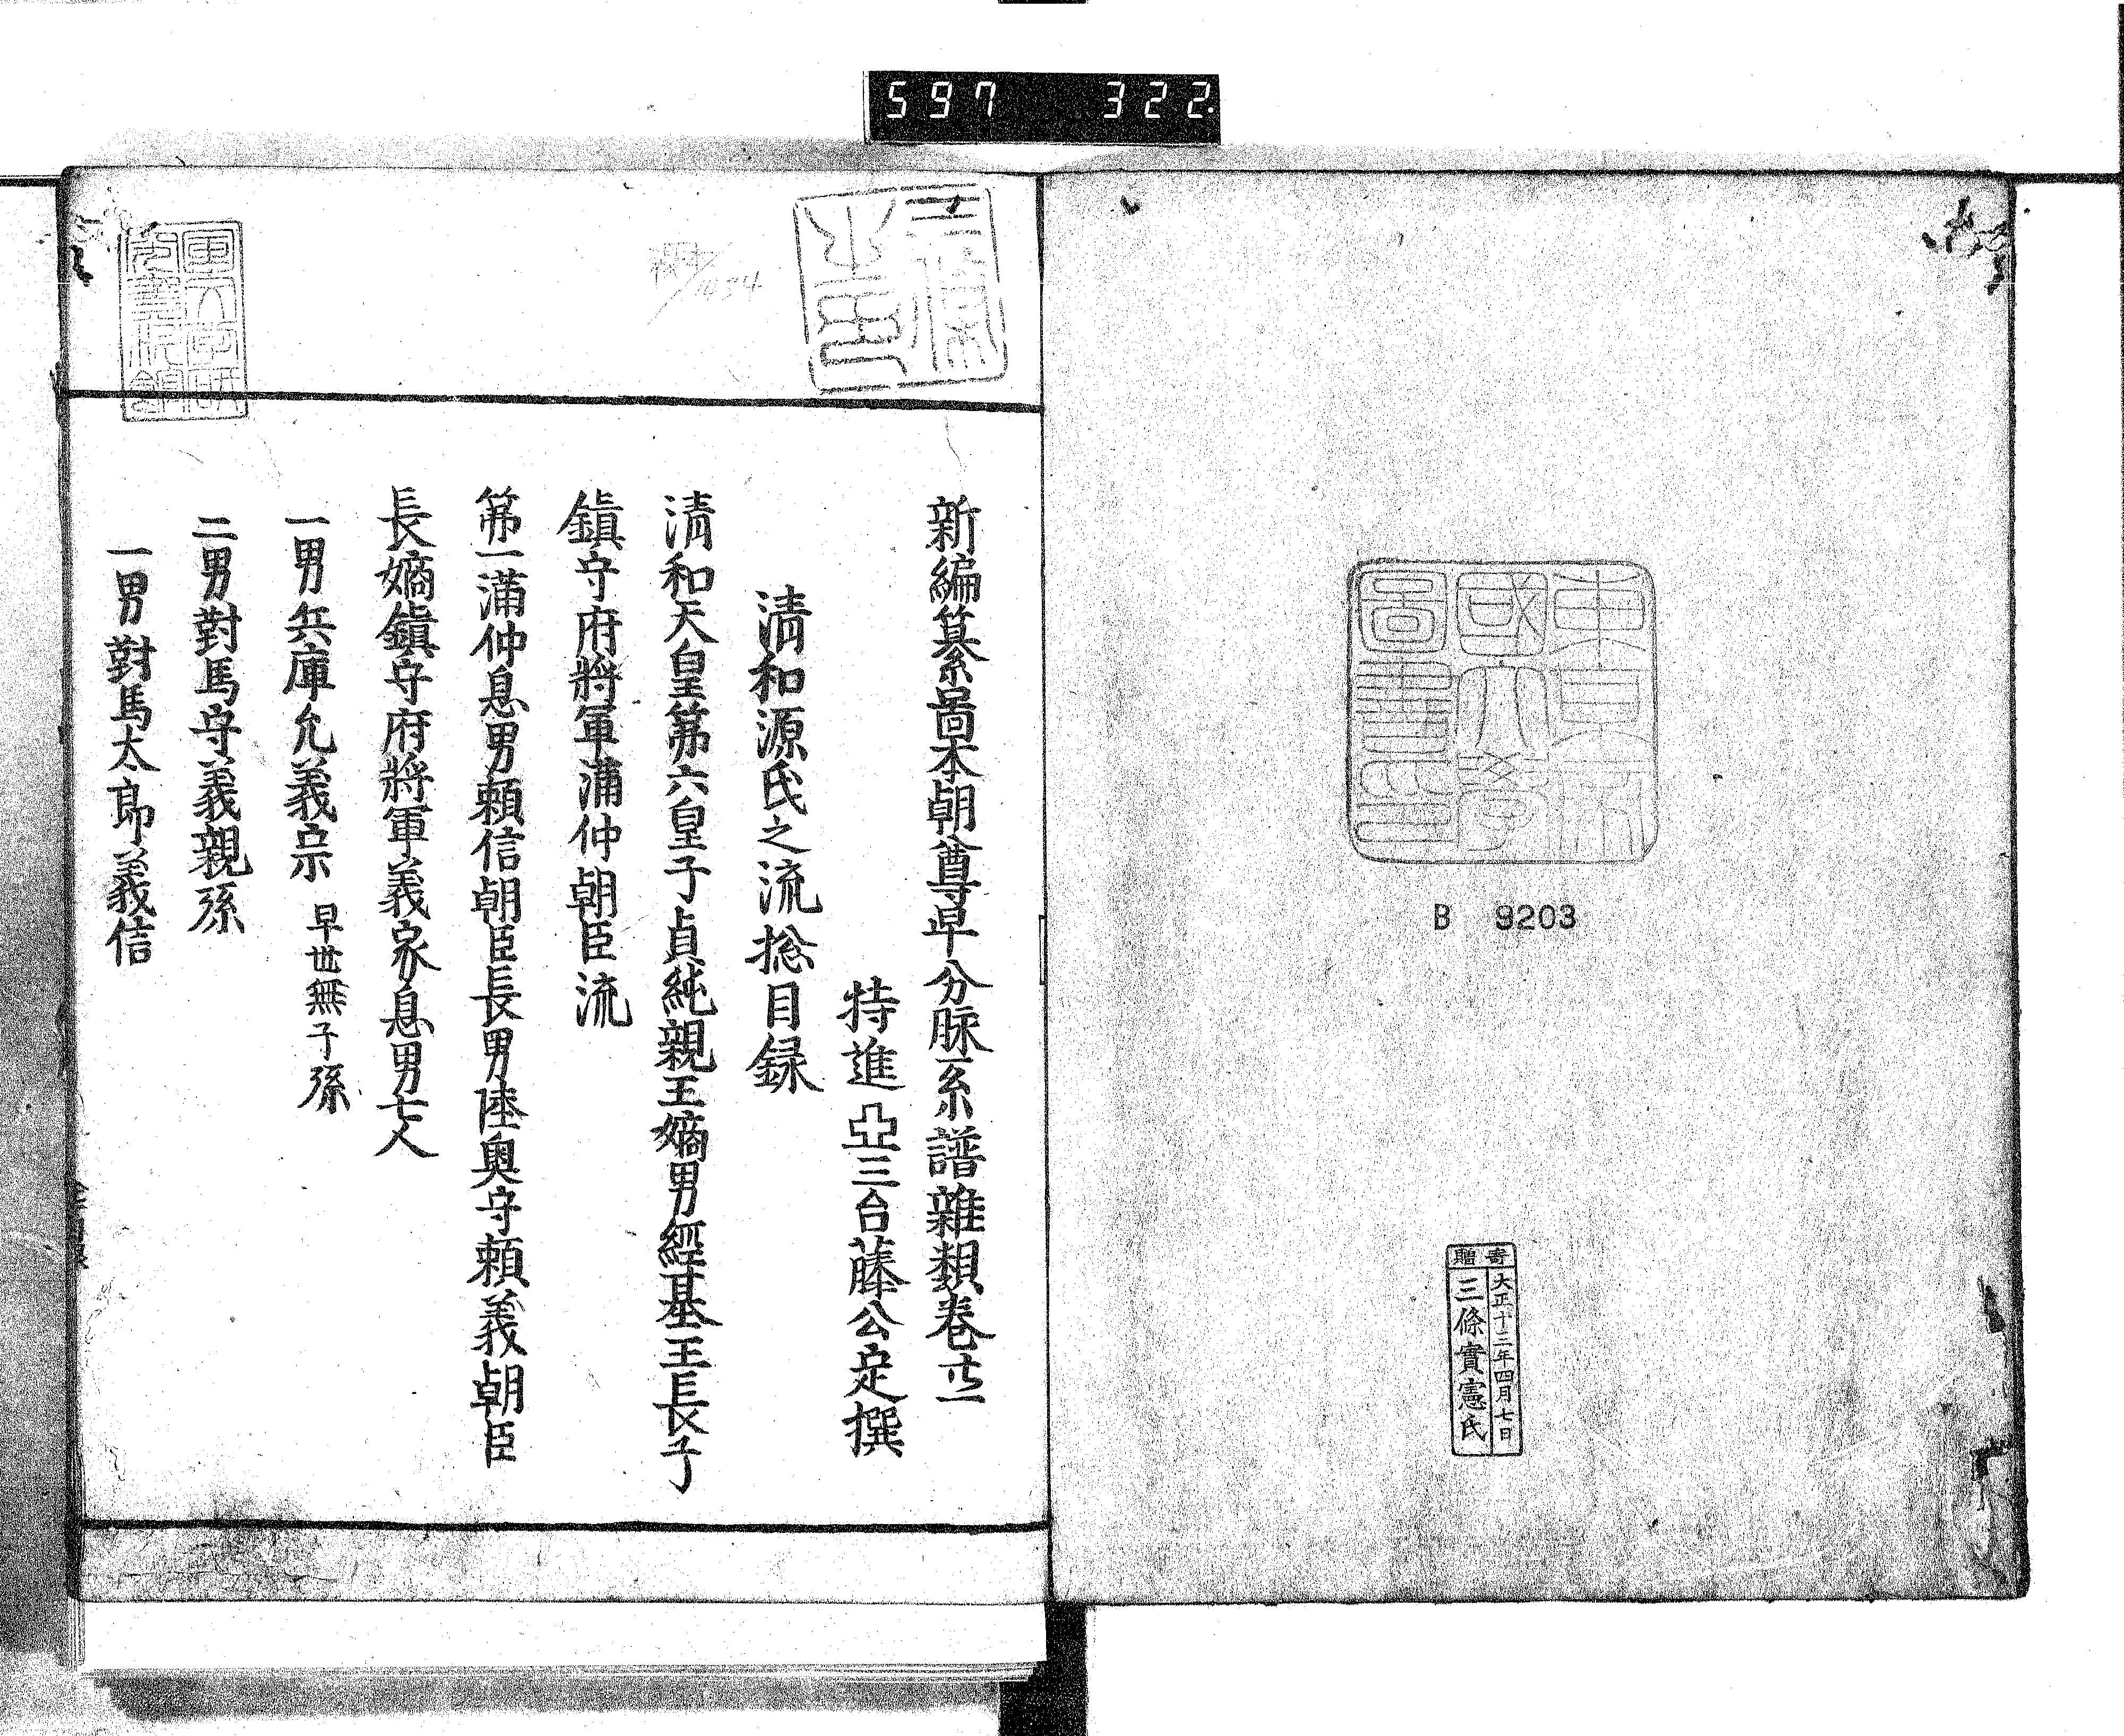 597 322
東京帝
國大學
圖書印
B 9203
寄贈
大正十三年四月七日
三條實憲氏
新編纂系啚本朝尊卑分脉系譜雜類卷廿一
特進亞三台藤公定撰
清和源氏之流捴目録
清和天皇第六皇子貞純親王嫡男經基王長子
鎮守府將軍滿仲朝臣流
第一滿仲息男頼信朝臣長男陸奥守頼義朝臣
長嫡鎮守府將軍義家息男七人
一男兵庫允義宗 早世無子孫
二男對馬守義親孫
一男對馬太郎義信